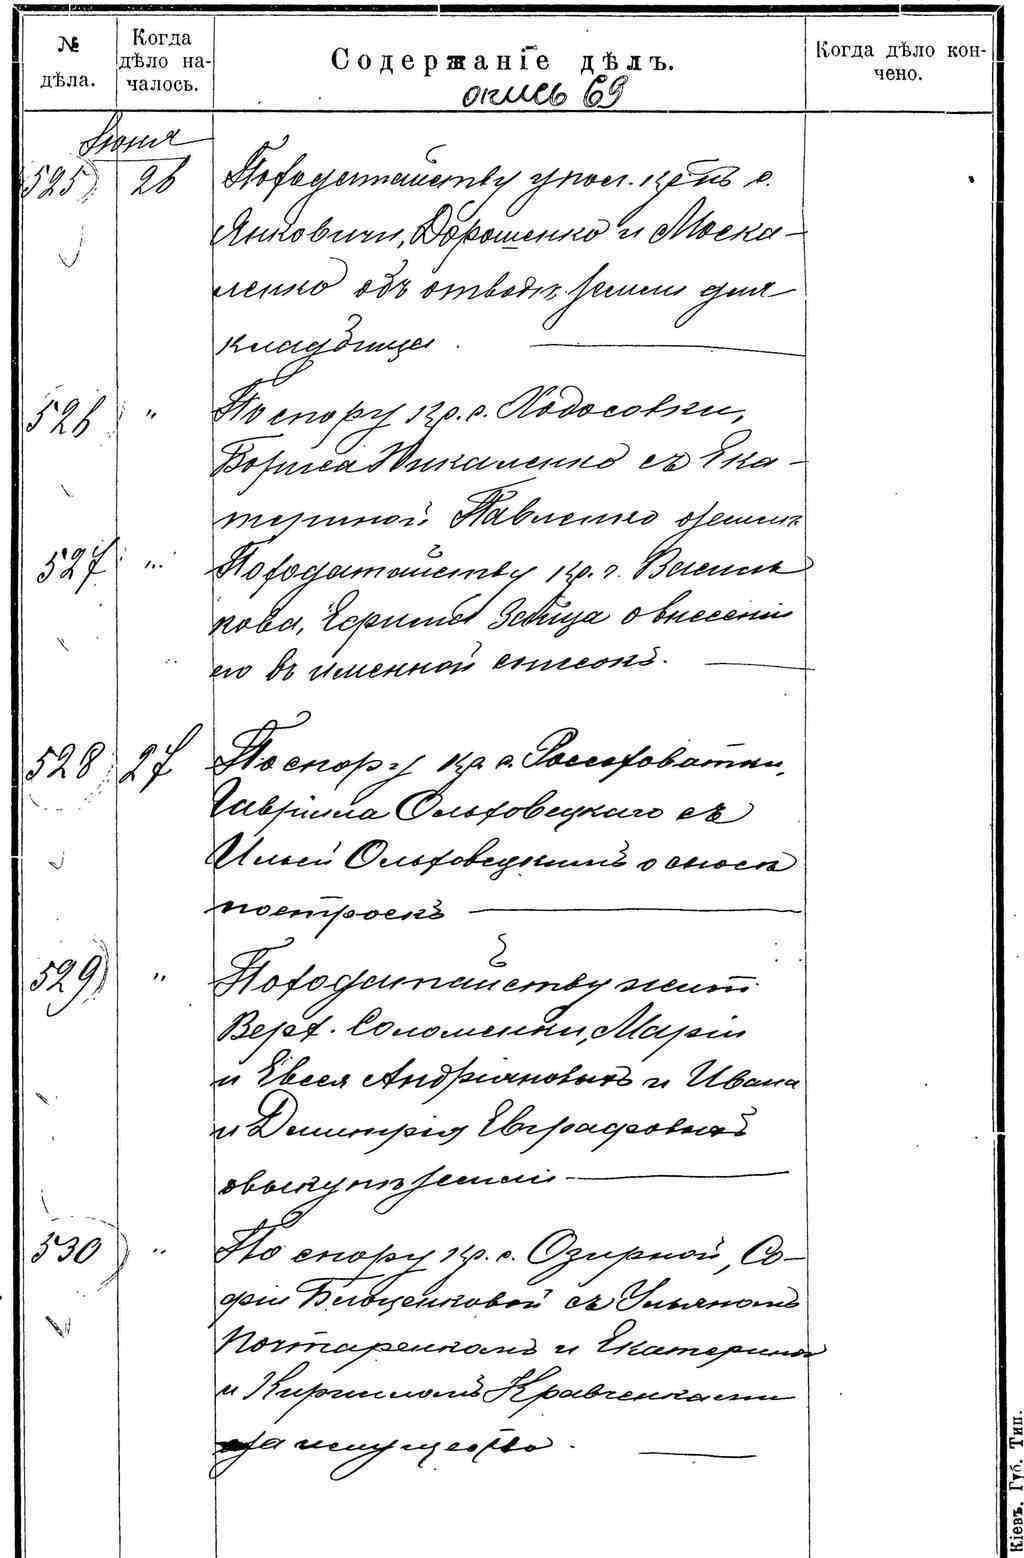 № дѣла.
Когда дѣло началось.
Содержаніе дѣлъ.
Когда дѣло кончено.
опись 69
Іюня
525 26 По ходатайству упол. кр-нъ с.
Янковичи, Дорошенко и Моска-
ленко объ отводѣ земли для
кладбища.
526 " По спору кр. с. Ходосовки,
Бориса Никаленко съ Ека-
териной Павленко о землѣ
527 " По ходатайству кр. г. Василь
кова, Ефима Зайца о внесеніи
его въ именной списокъ.
528 27 По спору кр. с. Россоховатки,
Гавріила Ольховецкаго съ
Ильей Ольховецкимъ о сносѣ
построекъ
529 " По ходатайству жит.
Верх. Соломенки, Маріи
и Евсея Андріяновыхъ и Ивана
и Дмитрія Евграфовыхъ
о выкупѣ земли
530 " По спору кр. с. Озирной, Со-
фіи Білоценковой съ Ульяномъ
Почтаренкомъ и Екатериной
и Кирилломъ Кравченками
за имущество.
Кіевъ. Губ. Тип.